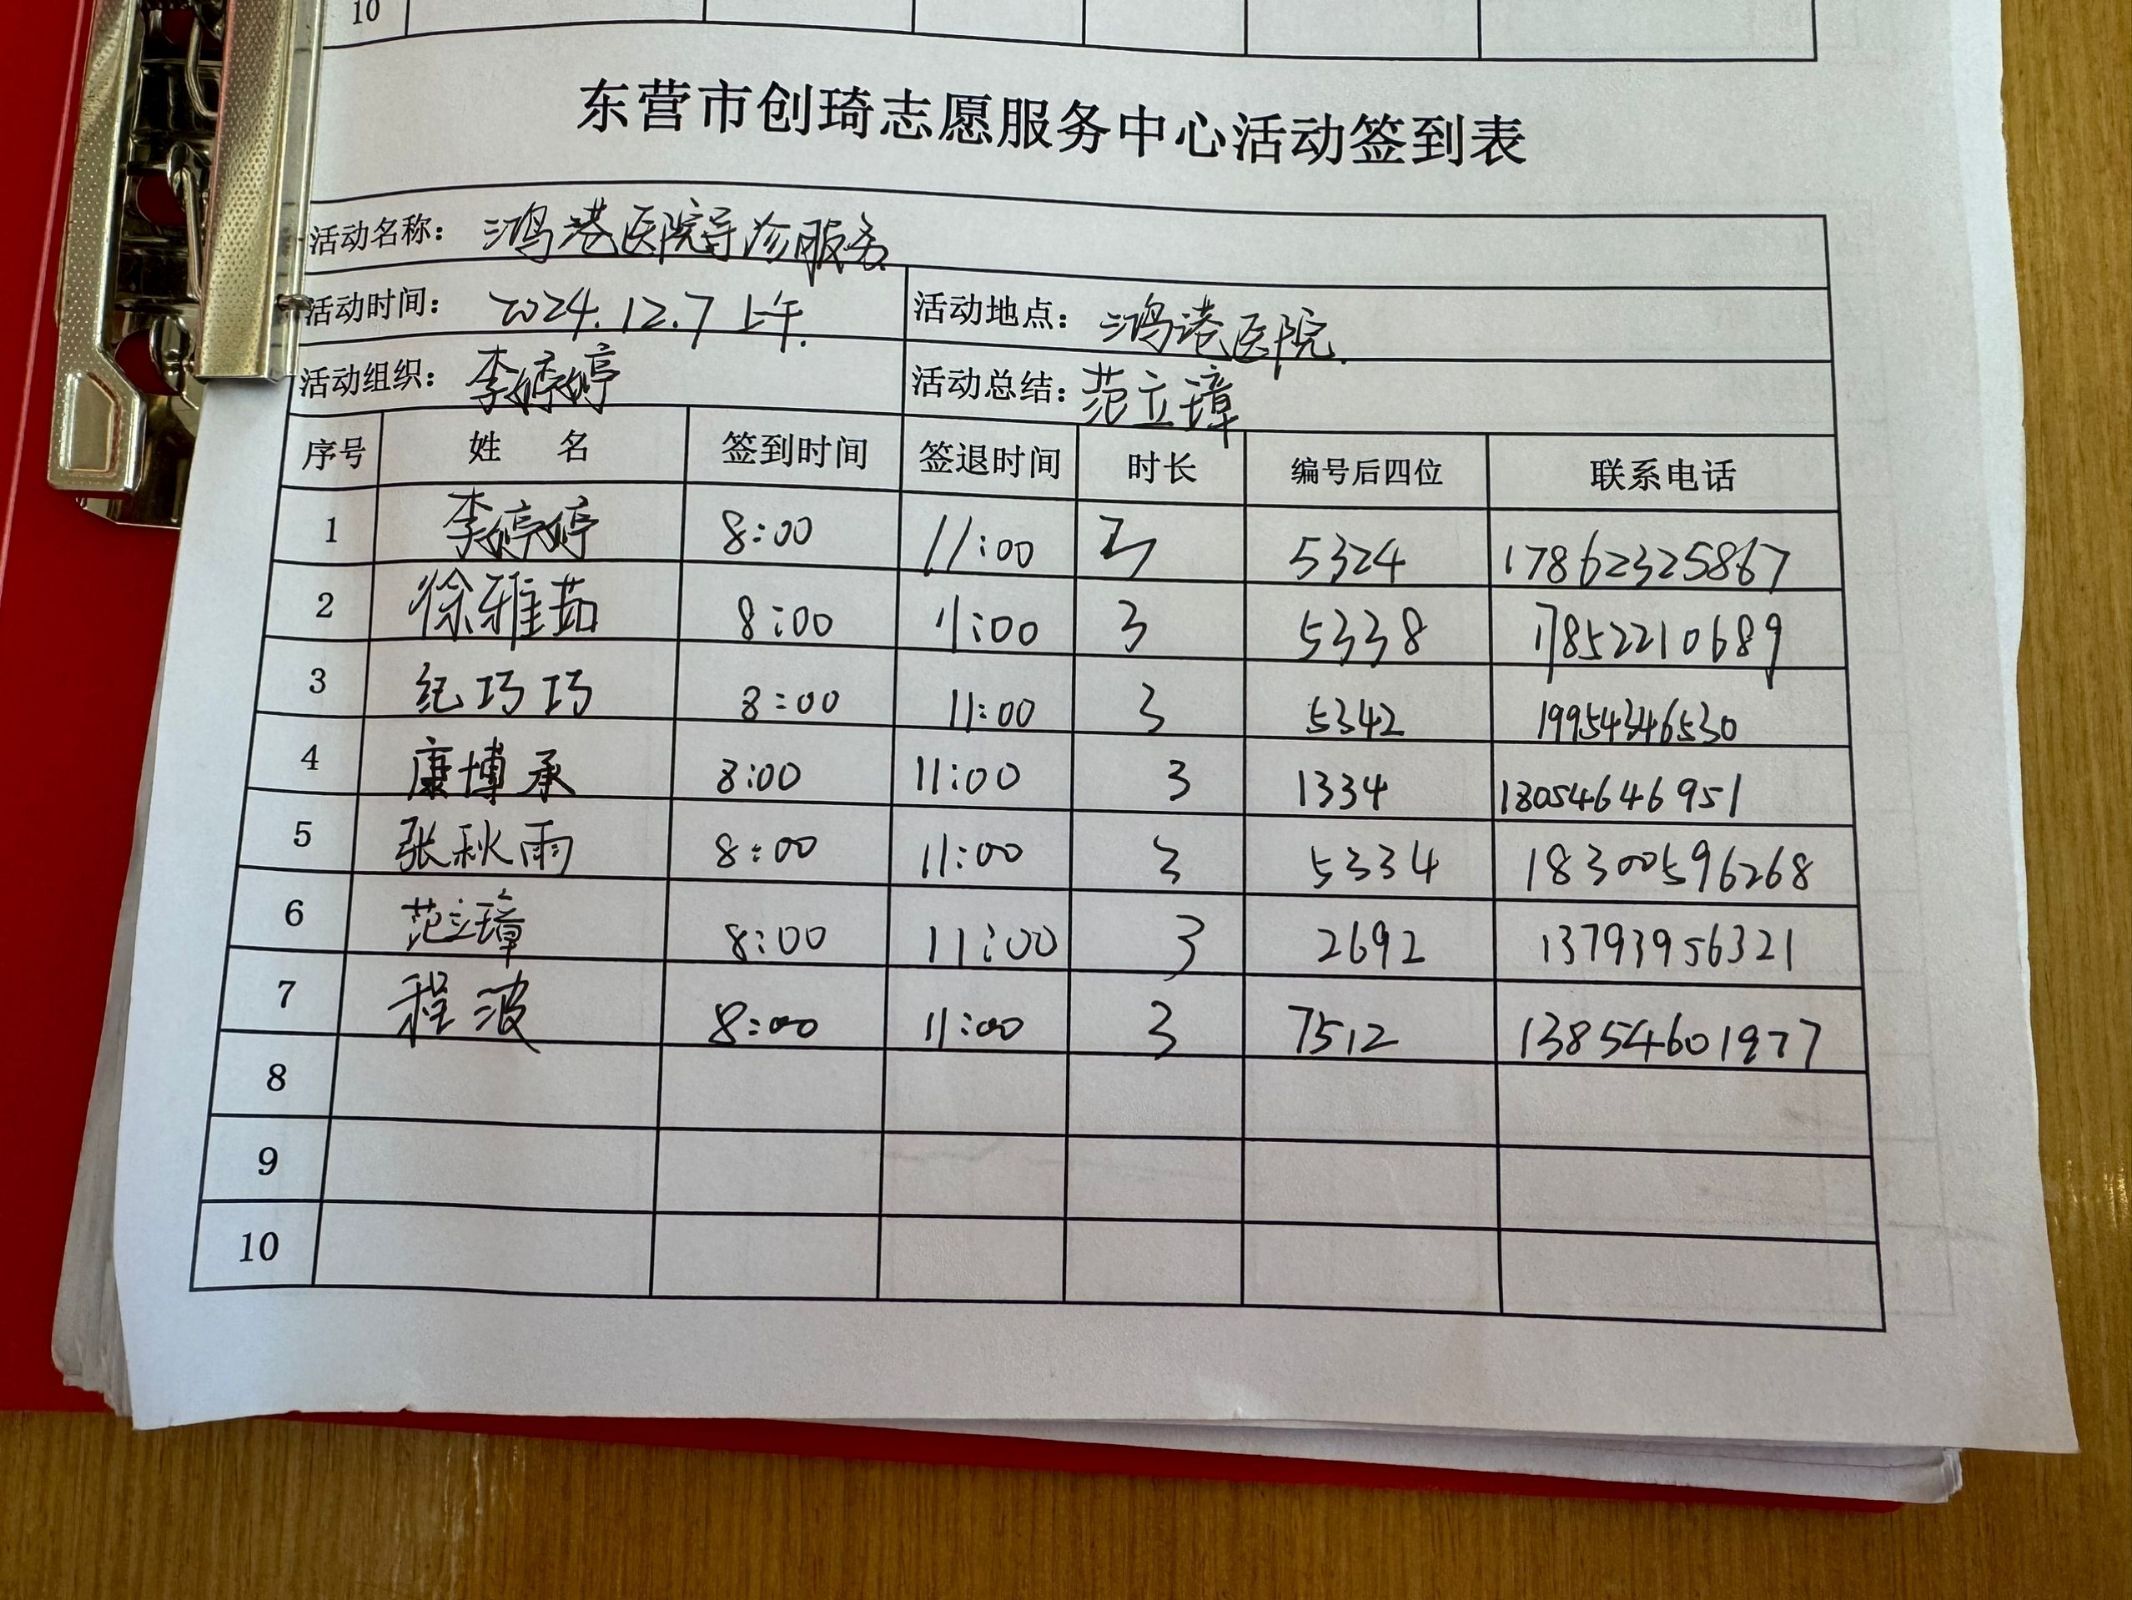 10
东营市创琦志愿服务中心活动签到表
活动名称： 鸿港医院导诊服务
活动时间： 2024.12.7 上午. 活动地点： 鸿港医院.
活动组织： 李婷婷 活动总结： 范立璋
序号 姓 名 签到时间 签退时间 时长 编号后四位 联系电话
1 李婷婷 8:00 11:00 3 5324 17862325867
2 徐雅茹 8:00 11:00 3 5338 17852210689
3 纪巧巧 8:00 11:00 3 5342 19954346530
4 康博承 8:00 11:00 3 1334 18054646951
5 张秋雨 8:00 11:00 3 5334 18300596268
6 范立璋 8:00 11:00 3 2692 13793956321
7 程波 8:00 11:00 3 7512 13854601977
8
9
10